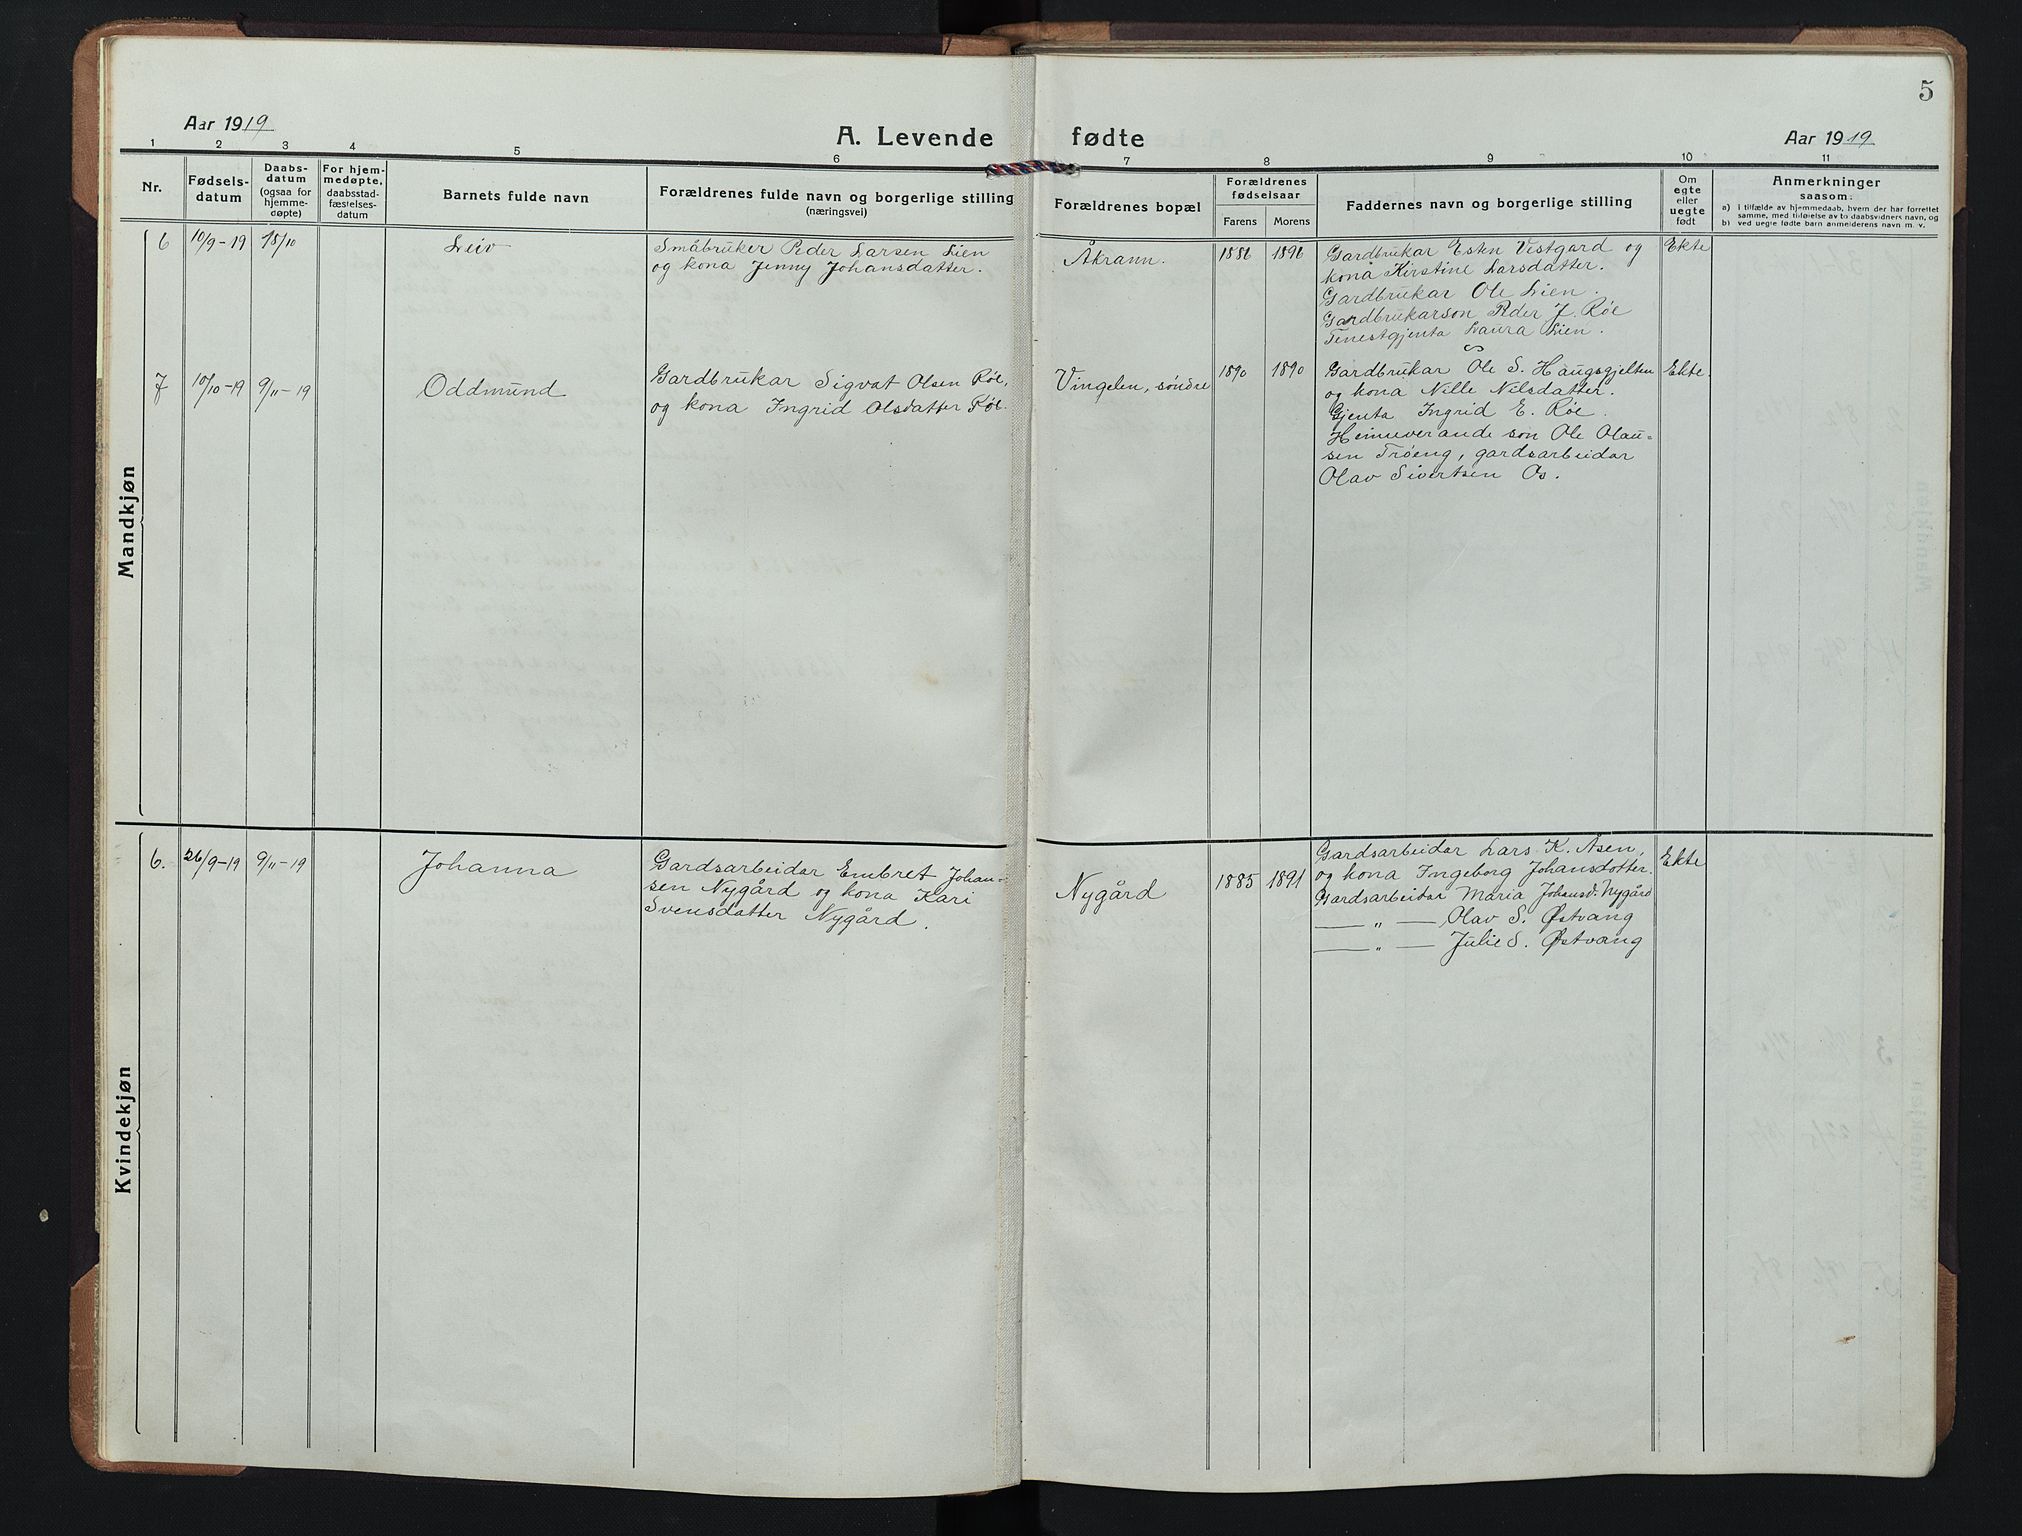 5
Aar 1919
A. Levende fødte
Aar 1919
1 2 3 4 5 6 7 8 9 10 11
Nr.
Fødsels-
datum
Daabs-
datum
(ogsaa for
hjemme-
døpte)
For hjem-
medøpte,
daabsstad-
fæstelses-
datum
Barnets fulde navn
Forældrenes fulde navn og borgerlige stilling
(næringsvei)
Forældrenes bopæl
Forældrenes
fødselsaar
Farens Morens
Faddernes navn og borgerlige stilling
Om
egte
eller
uegte
født
Anmerkninger
saasom:
a) i tilfælde av hjemmedaab, hvem der har forrettet
samme, med tilføielse av to daabsvidners navn, og
b) ved uegte fødte barn anmelderens navn m. v.
Mandkjøn
6 10/9-19 18/10
Leiv
Småbruker Peder Larsen Lien
og kona Jenny Johansdatter.
Åkrann.
1886 1896
Gardbrukar Esten Vestgard og
kona Kirstine Larsdatter.
Gardbrukar Ole Lien.
Gardbrukarson Peder J. Røe
Tenestgjenta Laura Lien.
Ekte
7 10/10-19 9/11-19
Oddmund
Gardbrukar Sigvat Olsen Røe,
og kona Ingrid Olsdatter Røe.
Vingelen, søndre
1890 1890
Gardbrukar Ole S. Haugsgjelten
og kona Nille Nilsdatter.
Gjenta Ingrid E. Røe.
Heimeverande son Ole Olau-
sen Trøeng, gardsarbeidar
Olav Sivertsen Os.
Ekte.
Kvindekjøn
6. 26/9-19 9/11-19
Johanna
Gardsarbeidar Embret Johan-
sen Nygård og kona Kari
Svensdatter Nygård.
Nygård
1885 1891
Gardsarbeidar Lars K. Åsen,
og kona Ingeborg Johansdotter.
Gardsarbeidar Maria Johansd. Nygård
— „ — Olav S. Østvang
— „ — Julie S. Østvang
Ekte